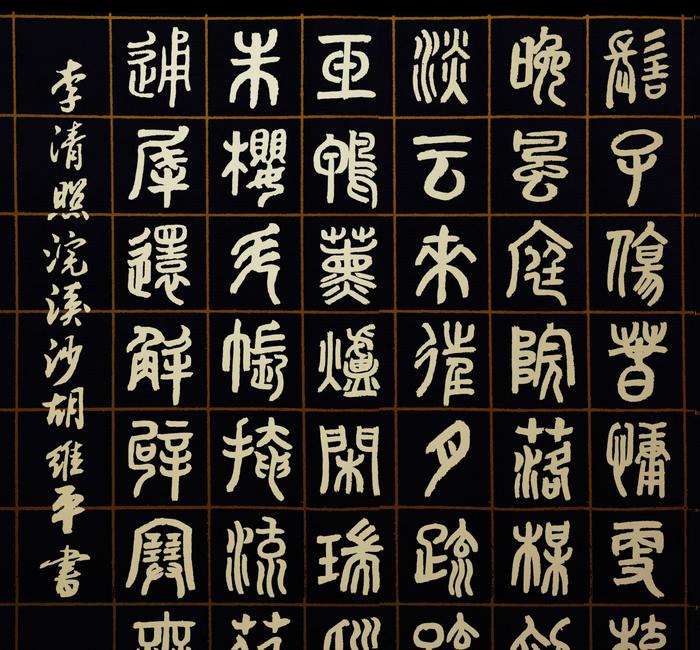 髻子傷春慵更
晚風庭院落梅
淡云來往月疏
玉鴨薰爐閑瑞
朱櫻斗帳掩流
通犀還解辟寒
李清照浣溪沙胡維平書